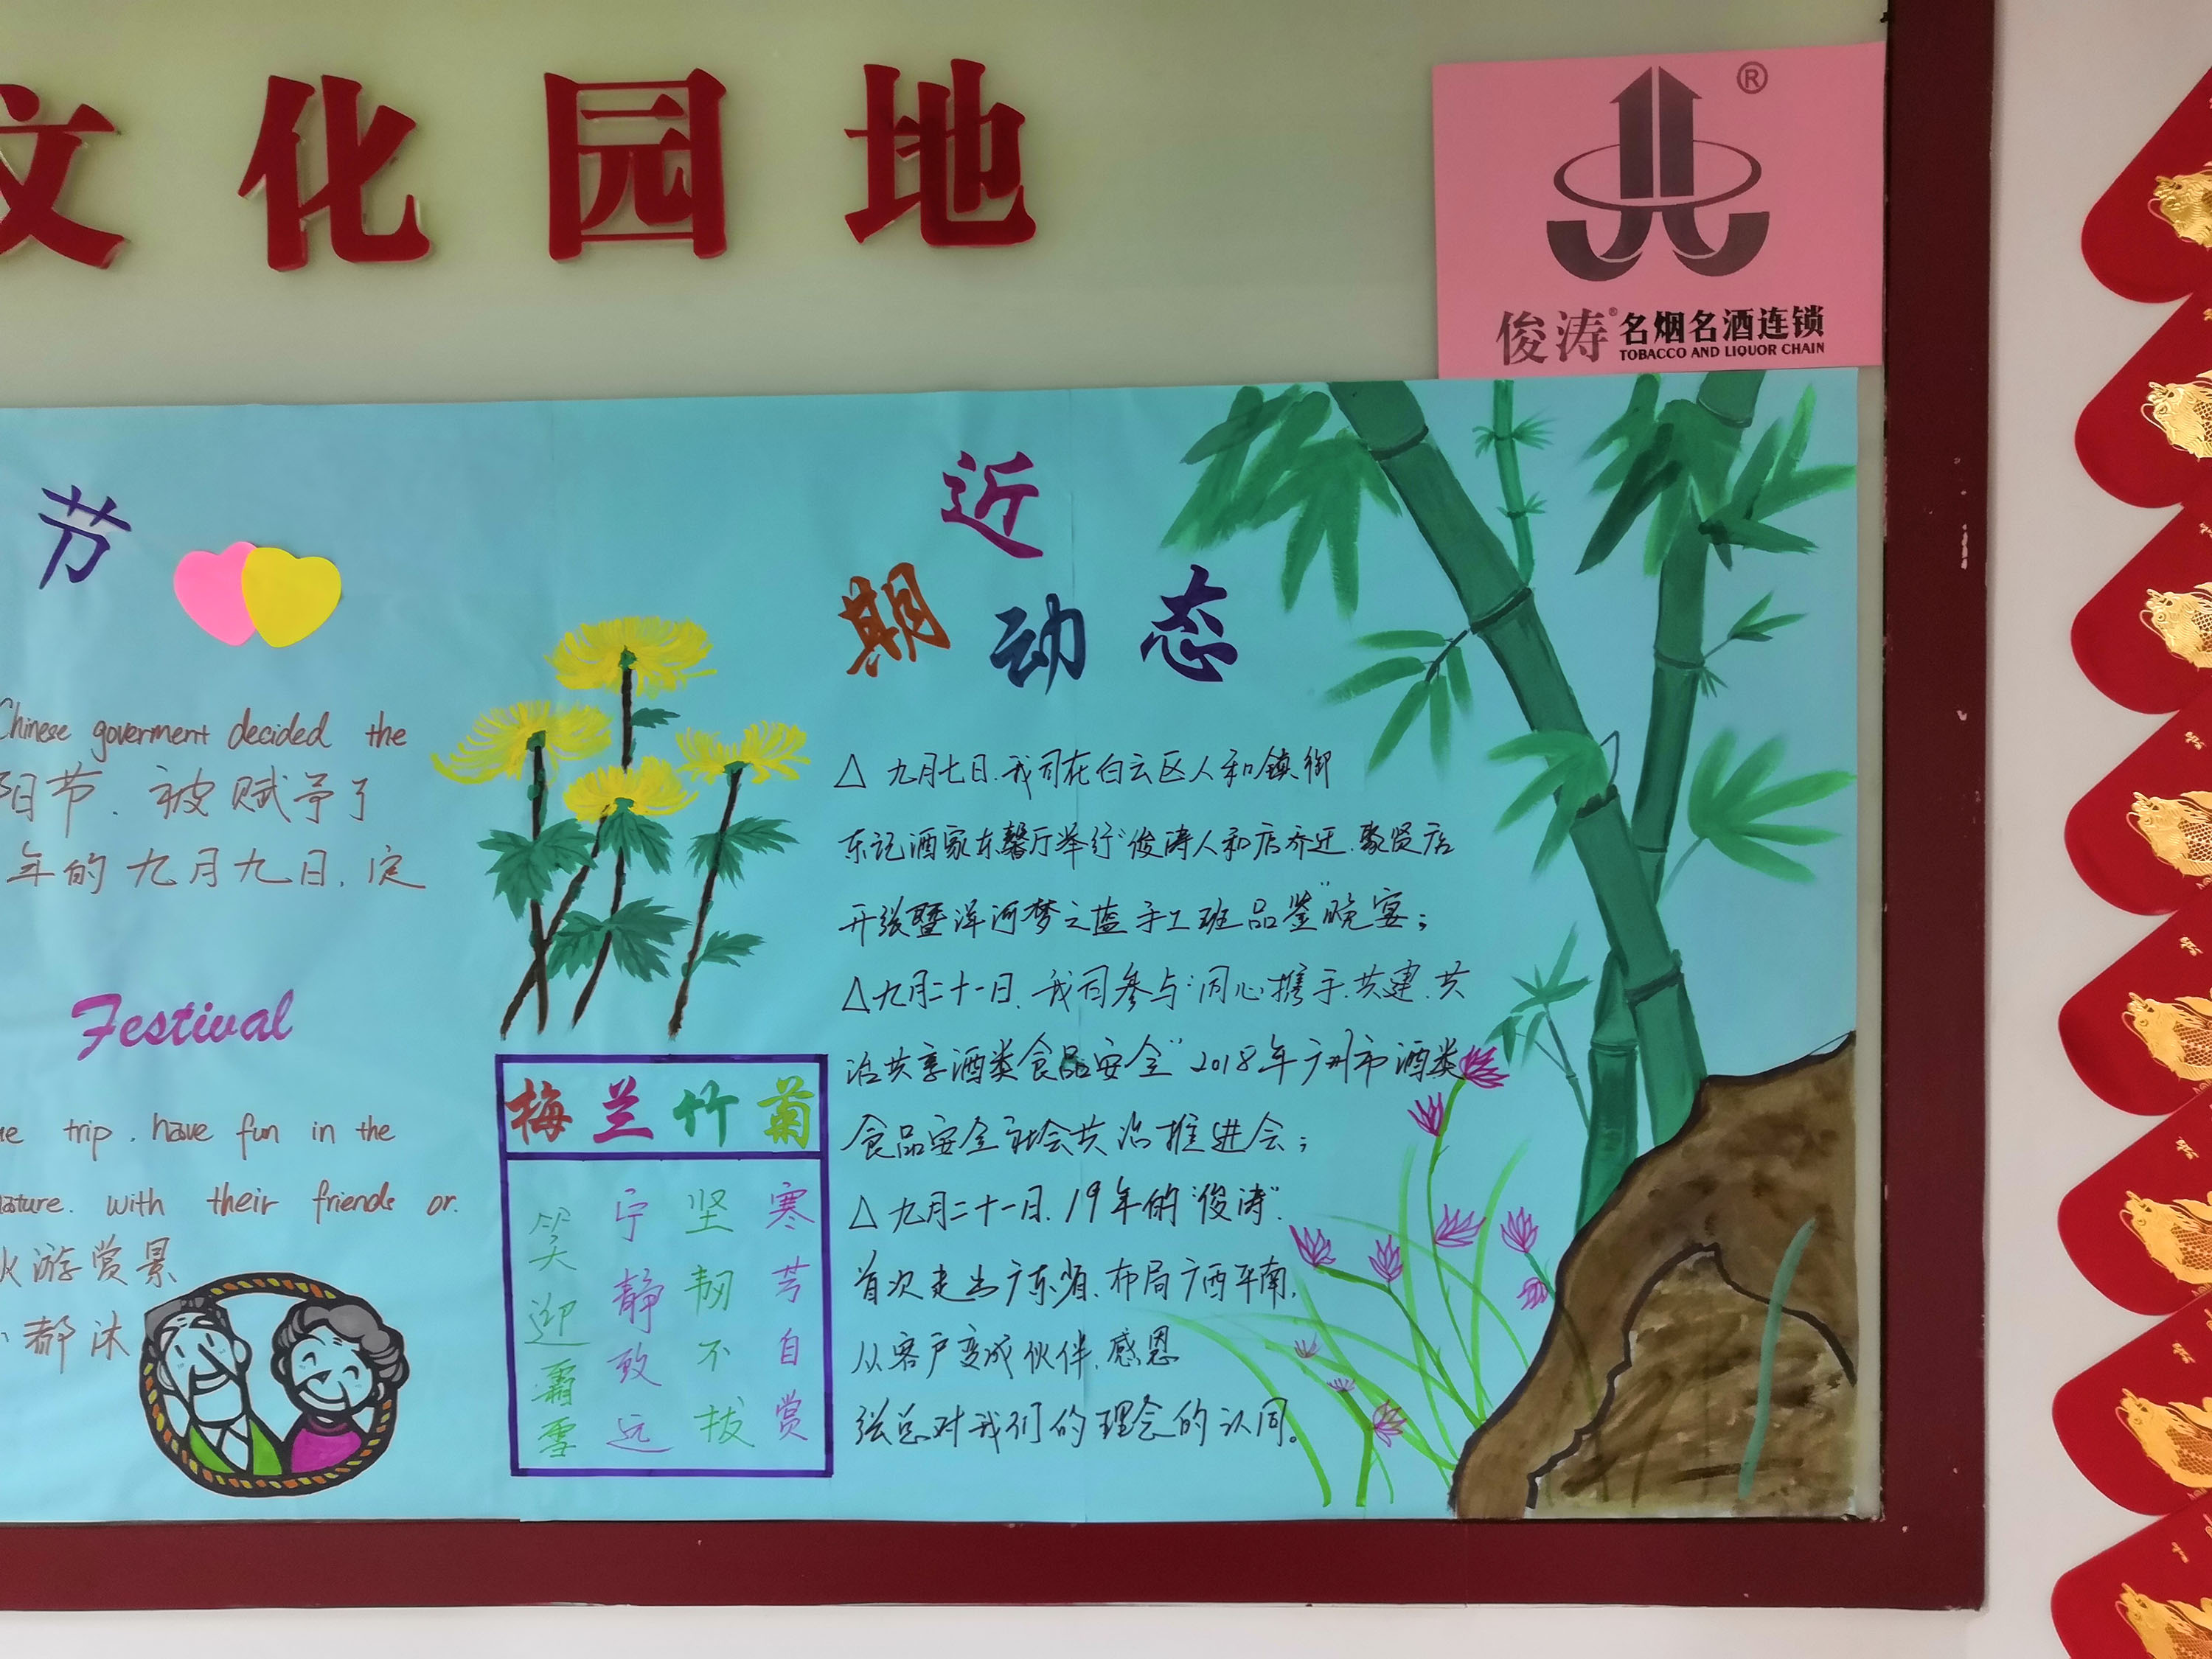 文化园地
®
俊涛®名烟名酒连锁
TOBACCO AND LIQUOR CHAIN
节
Chinese goverment decided the
阳节.被赋予了
年的九月九日,定
Festival
trip, have fun in the
with their friends or.
游赏景
都沐
梅兰竹菊
笑迎霜雪
宁静致远
坚韧不拔
寒芳自赏
近期动态
△ 九月七日.我司在白云区人和镇御
东记酒家东馨厅举行“俊涛人和店乔迁.聚贤店
开张暨洋河梦之蓝手工班品鉴”晚宴;
△九月二十一日.我司参与“同心携手.共建.共
治共享酒类食品安全”2018年广州市酒类
食品安全社会共治推进会;
△九月二十一日.19年的“俊涛”.
首次走出广东省.布局广西平南.
从客户变成伙伴.感恩
张总对我们的理念的认同。